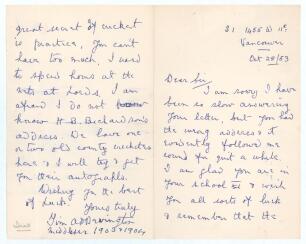 31 1455 W 11th
Vancouver
Oct 28/53
Dear Sir
I am sorry I have
been so slow answering
your letter, but you had
the wrong address & it
evidently followed me
round for quite a while.
I am glad you are in
your school XI & wish
you all sorts of luck
& remember that the
great secret of cricket
is practice, you can't
have too much, I used
to spend hours at the
nets at Lords. I am
afraid I do not
know H. B. Richardson's
address. We have one
or two old county cricketers
here & I will try & get
you their autographs.
Wishing you the best
of Luck. Yours truly
Tim A D Brevington
Middlesex 1903 & 1904